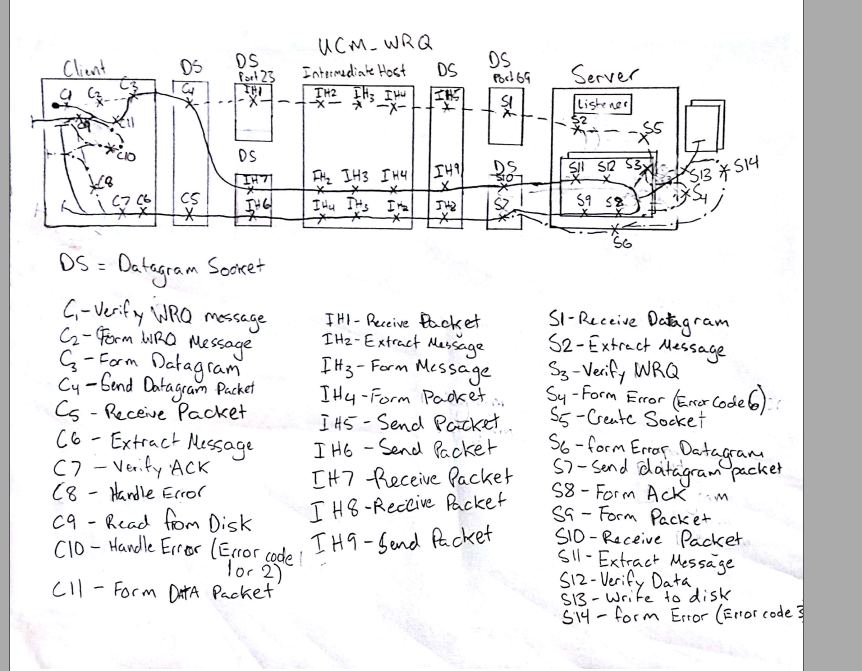 UCM_WRQ
Client
DS
DS
Port 23
Intermediate Host
DS
DS
Port 69
Server
C1
C2
C3
C4
IH1
IH2
IH3
IH4
IH5
S1
Listener
S2
S5
C9
C11
C10
C8
C7
C6
C5
DS
IH7
IH6
IH2
IH3
IH4
IH4
IH3
IH2
IH9
IH8
DS
S10
S7
S11
S12
S3
S9
S8
S13
S14
S4
S6
DS = Datagram Socket
C1-Verify WRQ message
C2-Form WRQ Message
C3-Form Datagram
C4-Send Datagram Packet
C5 - Receive Packet
C6 - Extract Message
C7 - Verify ACK
C8 - Handle Error
C9 - Read from Disk
C10 - Handle Error (Error code 1 or 2)
C11 - Form DATA Packet
IH1-Receive Packet
IH2-Extract Message
IH3-Form Message
IH4-Form Packet
IH5-Send Packet
IH6-Send Packet
IH7-Receive Packet
IH8-Receive Packet
IH9-Send Packet
S1-Receive Datagram
S2-Extract Message
S3-Verify WRQ
S4-Form Error (Error Code 6)
S5-Create Socket
S6-form Error Datagram
S7-Send datagram packet
S8-Form Ack
S9-Form Packet
S10-Receive Packet
S11-Extract Message
S12-Verify Data
S13-Write to disk
S14-form Error (Error code 3